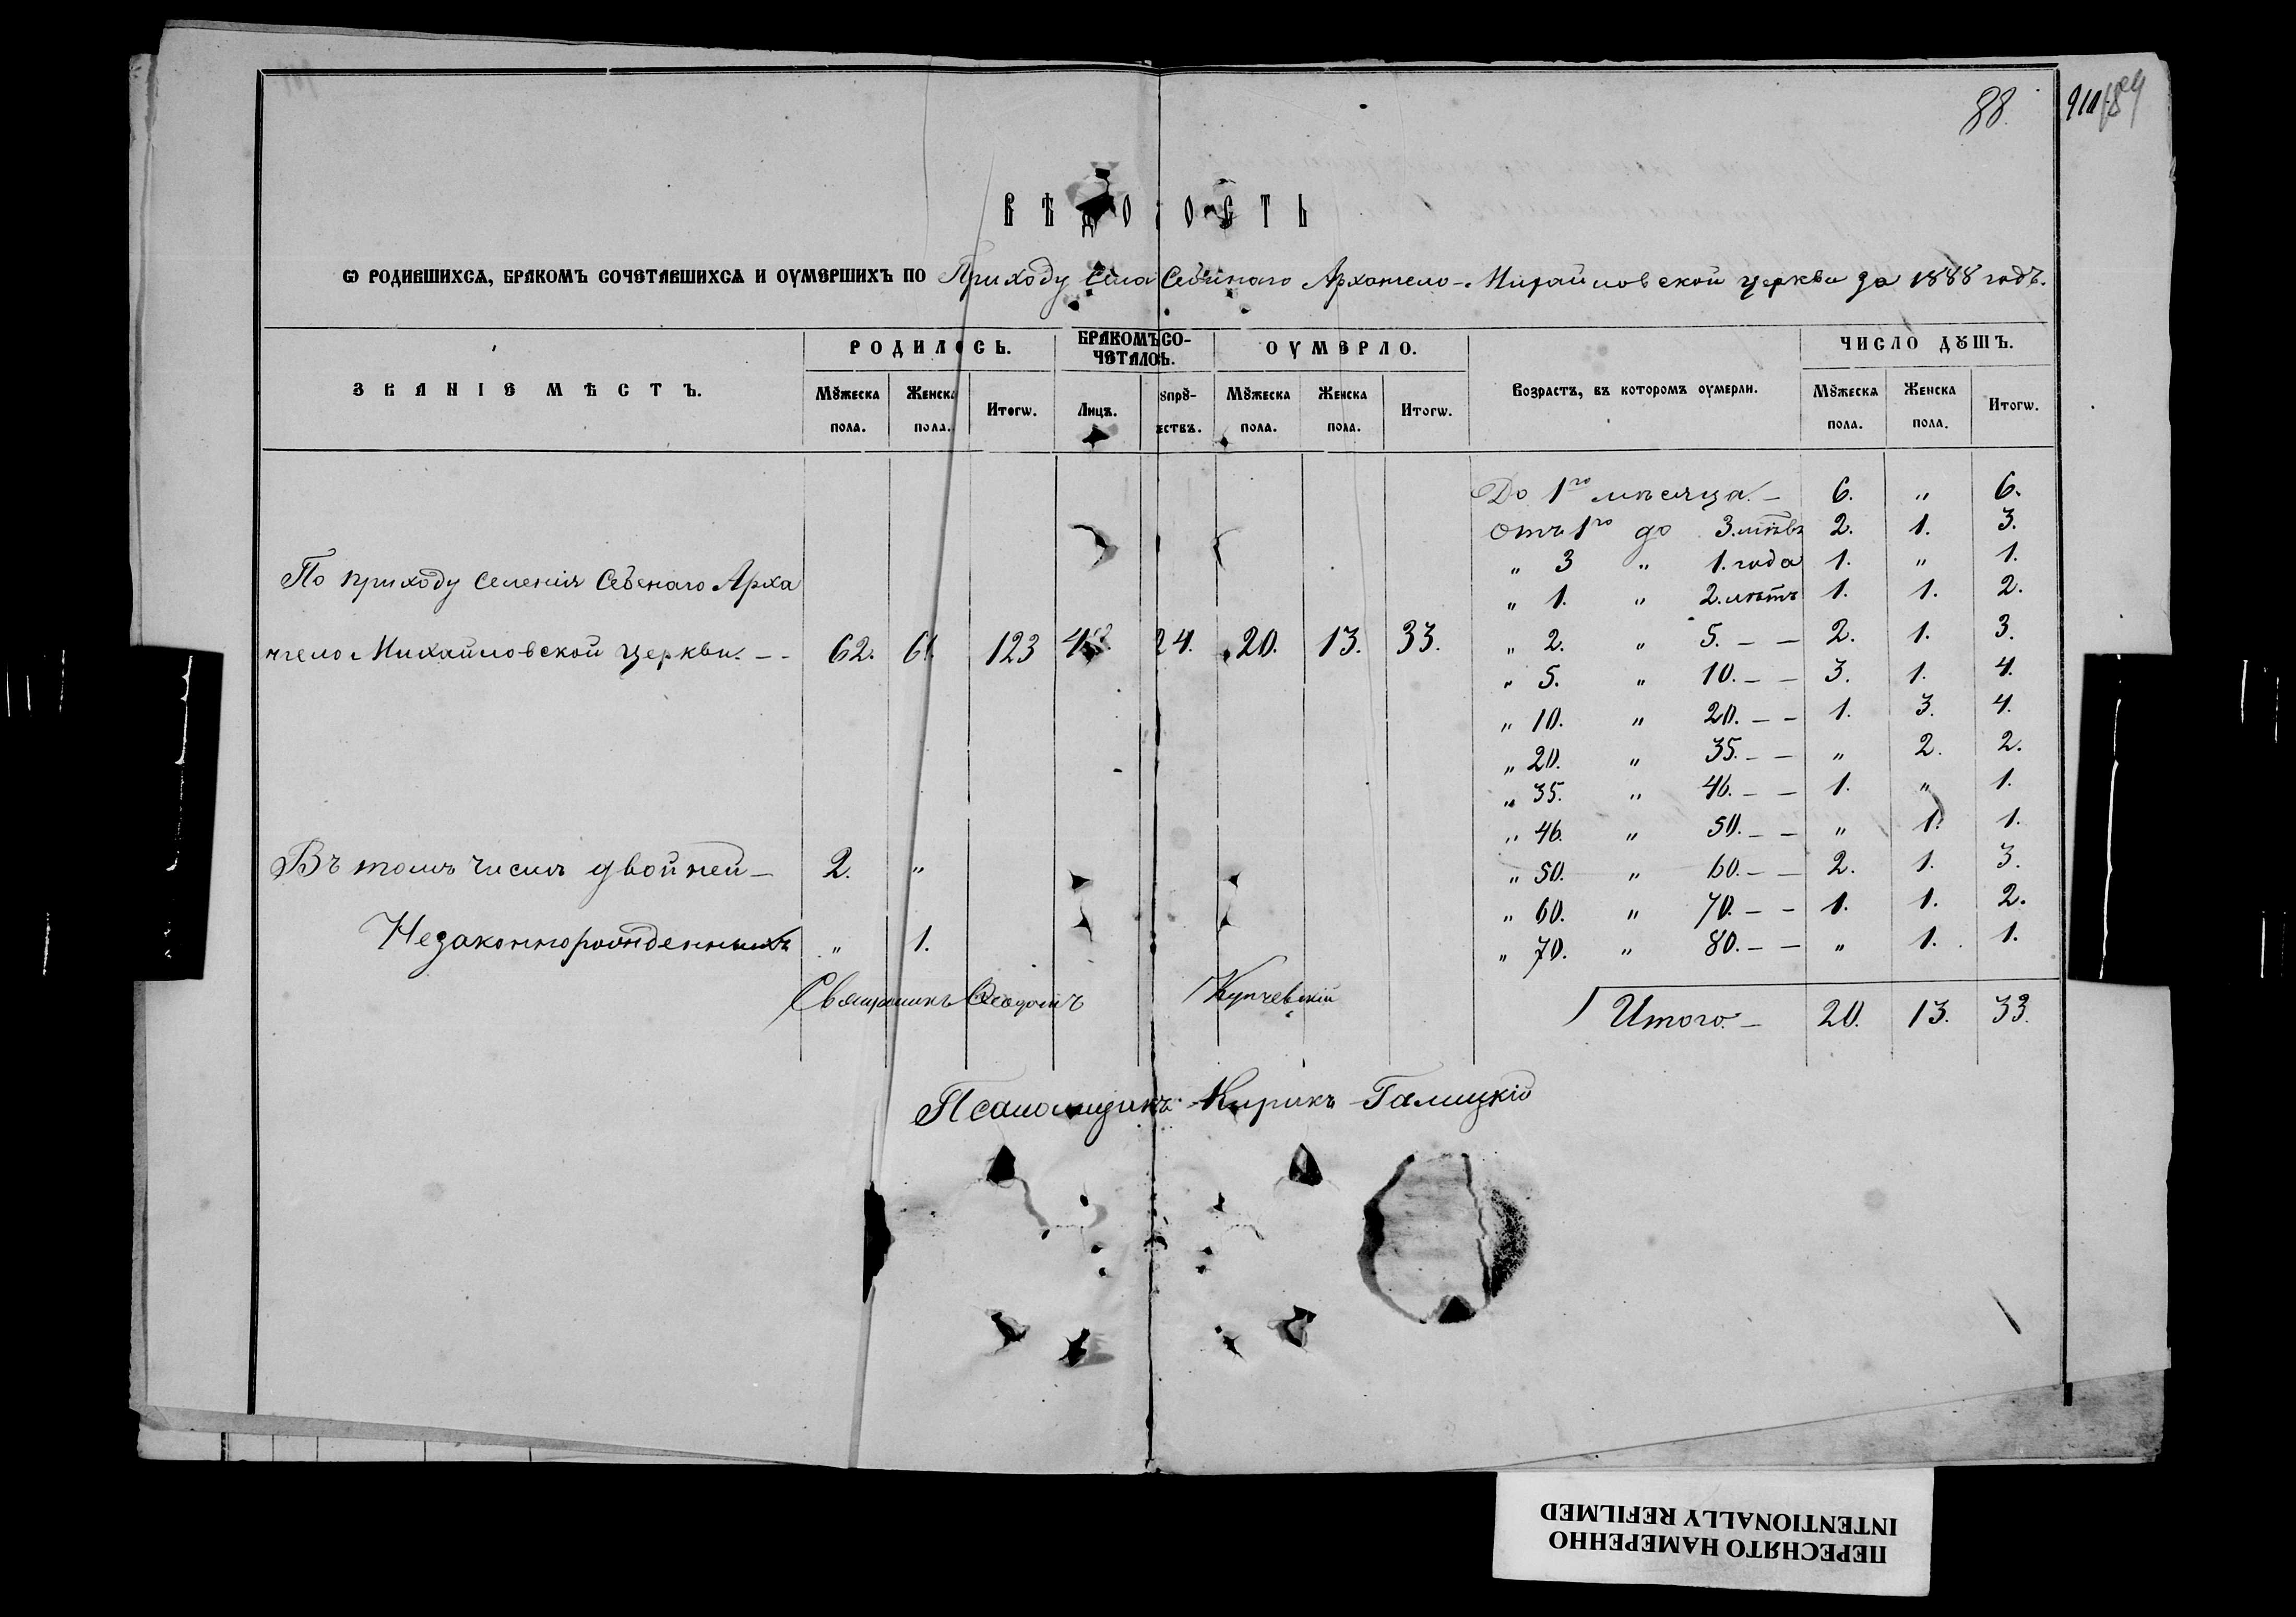 88.
ВѢДОМОСТЬ
Ѡ РОДИВШИХСѦ, БРАКОМЪ СОЧЕТАВШИХСѦ И ОУМЕРШИХЪ ПО Приходу села Архангело-Михайловской церкви за 1888 годъ.
ЗВАНІЕ МѢСТЪ. РОДИЛОСЬ. БРАКОМЪ СО-ЧЕТАЛОСЬ. ОУМЕРЛО. Возрастъ, въ которомъ оумерли. ЧИСЛО ДꙊШЪ.
Мꙋжеска пола. Женска пола. Итогѡ. Лицъ. Мꙋжеска пола. Женска пола. Итогѡ. Мꙋжеска пола. Женска пола. Итогѡ.
До 1го мѣсяца. – 6. „ 6.
Отъ 1го до 3. 2. 1. 3.
„ 3 „ 1. года 1. „ 1.
По приходу селенія Арха
„ 1. „ 2. лѣтъ 1. 1. 2.
нгело-Михайловской церкви. – - 62. 61. 123 24. 20. 13. 33.
„ 2. „ 5. – – 2. 1. 3.
„ 5. „ 10. – – 3. 1. 4.
„ 10. „ 20. – – 1. 3. 4.
„ 20. „ 35. – – „ 2. 2.
„ 35. „ 46. – – 1. „ 1.
„ 46. „ 50. – – „ 1. 1.
Въ томъ числѣ двойней – 2. „
„ 50. „ 60. – – 2. 1. 3.
„ 60. „ 70. – – 1. 1. 2.
Незаконнорожденныхъ „ 1.
„ 70. „ 80. – – „ 1. 1.
Священникъ Купчевскій
Итого. – 20. 13. 33.
Псаломщикъ Кирикъ Галицкій
ПЕРЕСНЯТО НАМЕРЕННО
INTENTIONALLY REFILMED